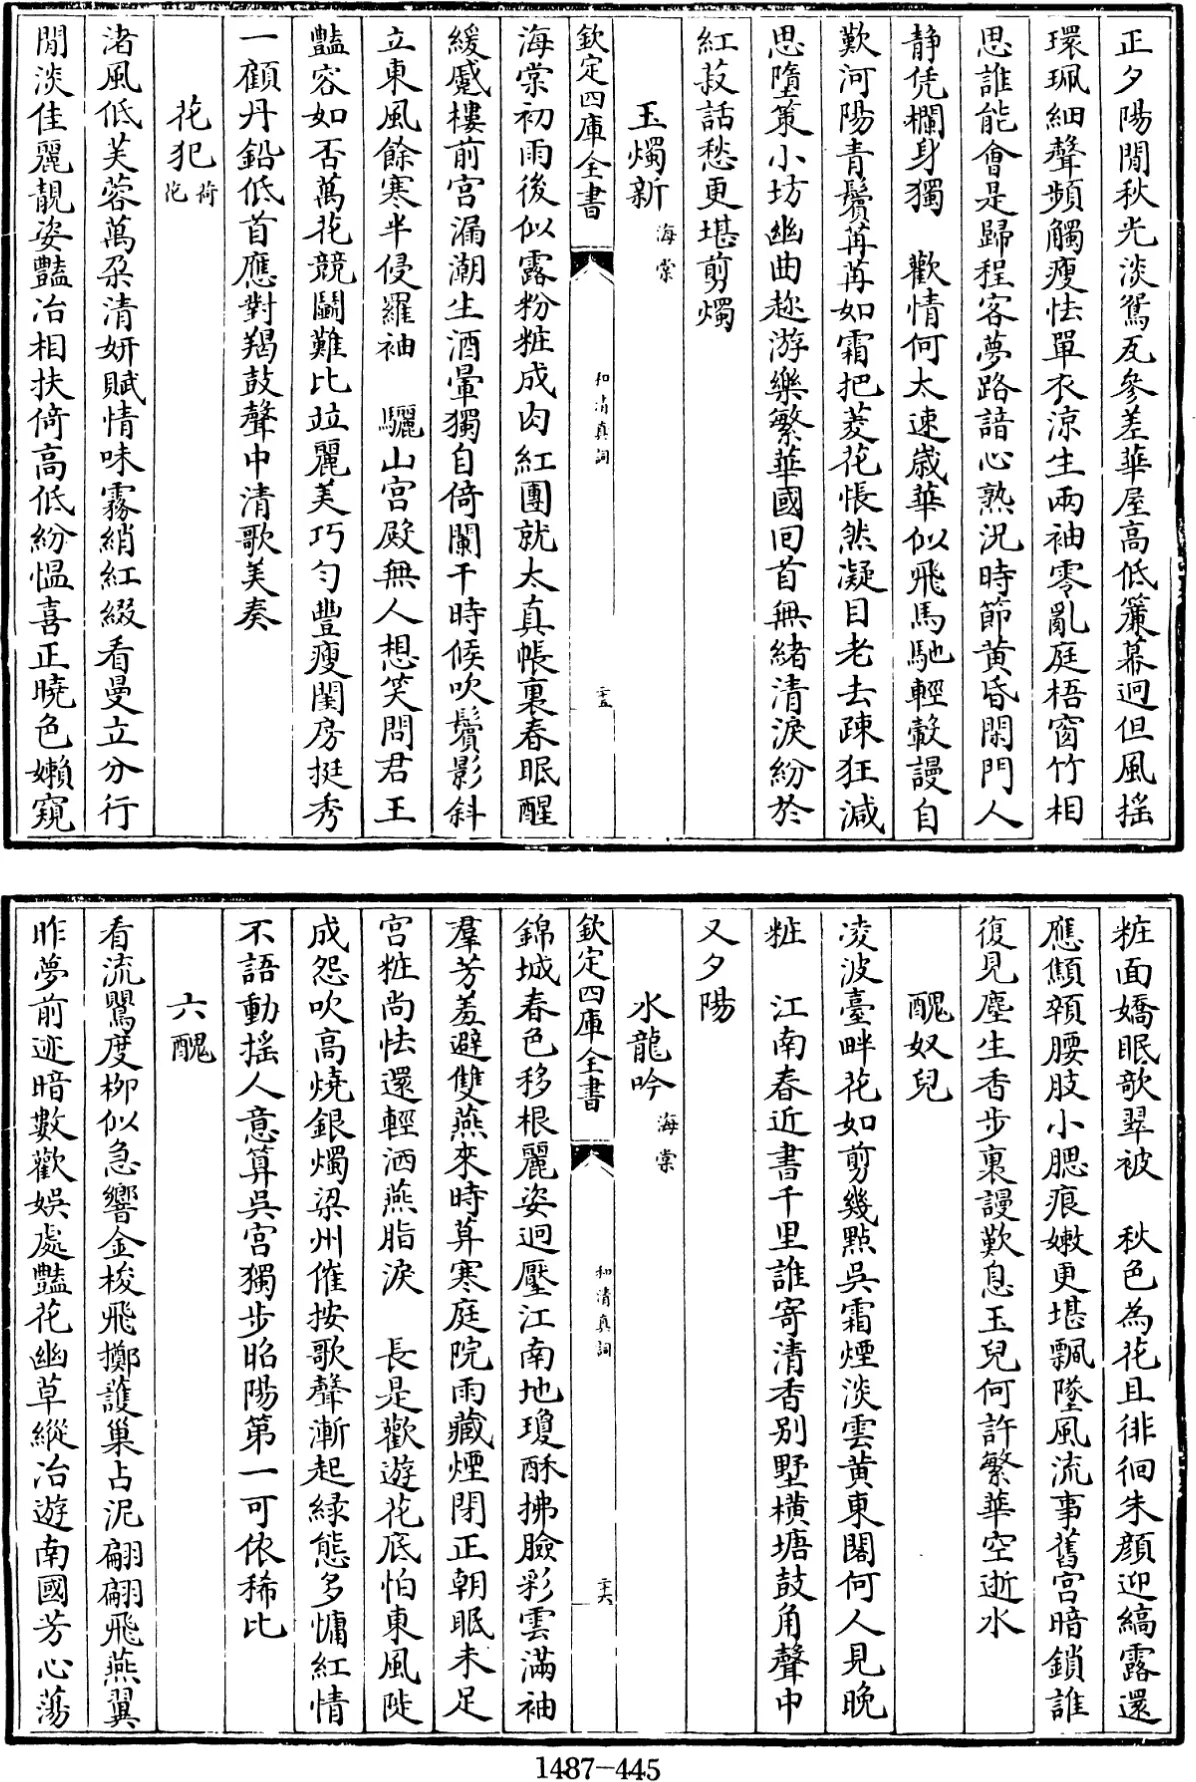 正夕陽閒秋光淡鴛瓦參差華屋高低簾幕迥但風搖
環珮細聲頻觸瘦怯單衣涼生兩袖零亂庭梧窗竹相
思誰能會是歸程客夢路諳心熟況時節黄昏閑門人
静凭欄身獨　歡情何太速歲華似飛馬馳輕轂謾自
歎河陽青鬢苒苒如霜把菱花悵然凝目老去疎狂減
思墮策小坊幽曲趂游樂繁華國回首無緒清淚紛於
紅菽話愁更堪剪燭
玉燭新海棠
欽定四庫全書　和清真詞　二十五
海棠初雨後似露粉粧成肉紅團就太真帳裏春眠醒
緩蹙樓前宫漏潮生酒暈獨自倚闌干時候吹鬢影斜
立東風餘寒半侵羅袖　驪山宫殿無人想笑問君王
豔容如否萬花競鬬難比竝麗美巧匀豐瘦閨房挺秀
一顧丹鉛低首應對羯鼓聲中清歌美奏
花犯荷花
渚風低芙蓉萬朶清妍賦情味霧綃紅綴看曼立分行
閒淡佳麗靚姿豔冶相扶倚高低紛愠喜正曉色嬾窺
粧面嬌眠欹翠被　秋色為花且徘徊朱顔迎縞露還
應顦顇腰肢小腮痕嫩更堪飄墜風流事舊宫暗鎖誰
復見塵生香步裏謾歎息玉兒何許繁華空逝水
醜奴兒
凌波臺畔花如剪幾點吳霜煙淡雲黄東閣何人見晚
粧　江南春近書千里誰寄清香别墅橫塘鼓角聲中
又夕陽
水龍吟海棠
欽定四庫全書　和清真詞　二十六
錦城春色移根麗姿迥壓江南地瓊酥拂臉彩雲滿袖
羣芳羞避雙燕來時算寒庭院雨藏煙閉正朝眠未足
宫粧尚怯還輕洒燕脂淚　長是歡遊花底怕東風陡
成怨吹高燒銀燭梁州催按歌聲漸起緑態多慵紅情
不語動搖人意算吳宫獨步昭陽第一可依稀比
六醜
看流鸎度栁似急響金梭飛擲護巢占泥翩翩飛燕翼
昨夢前迹暗數歡娱處豔花幽草縱冶遊南國芳心蕩
1487-445